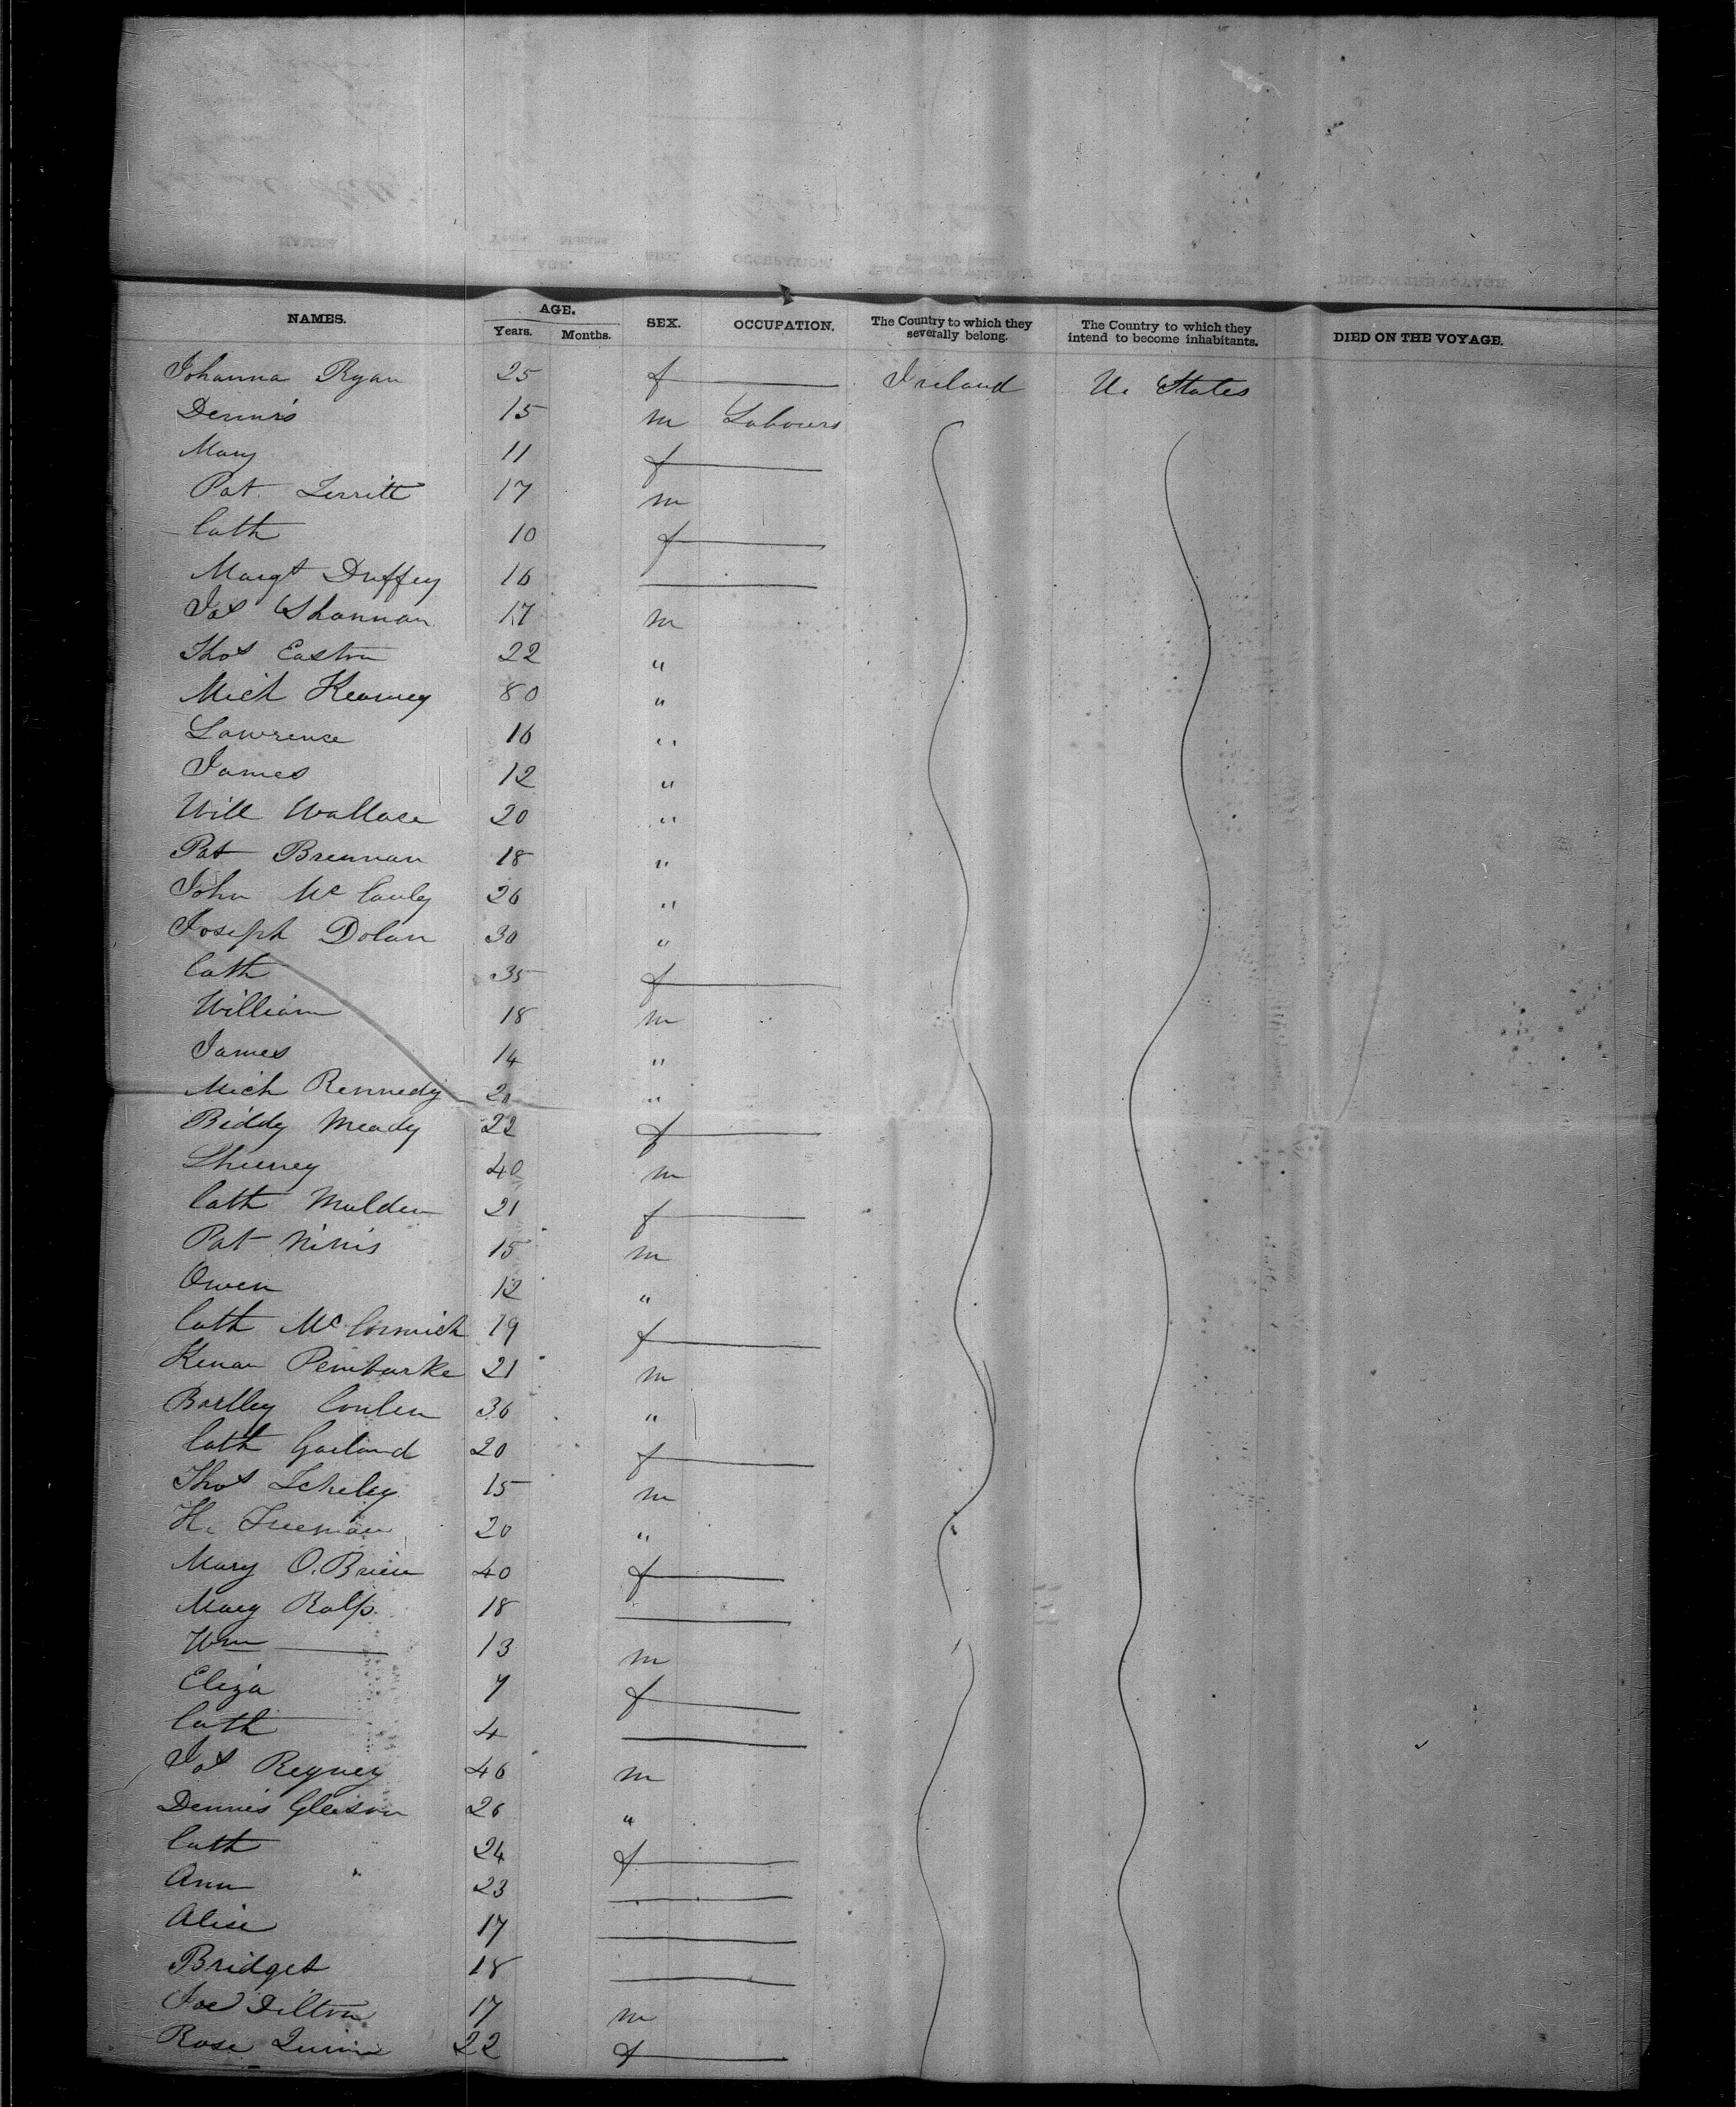 NAMES. AGE. Years. Months. SEX. OCCUPATION. The Country to which they severally belong. The Country to which they intend to become inhabitants. DIED ON THE VOYAGE.
Johanna Ryan 25 f Ireland U. States
Dennis 15 m Labourers
Mary 11 f
Pat 17 m
Cath 10 f
Margt Duffey 16
Jas Shannan 17 m
Thos Easton 22 "
Mich Kearney 80 "
Lawrence 16 "
James 12 "
Will Wallace 20 "
Pat Brennan 18 "
John Mc Cauly 26 "
Joseph Dolan 30 "
Cath 35 f
William 18 m
James 14 "
Mich Rennedy 20 "
Biddy Meady 22 f
40 m
Cath Mulden 21 f
Pat Ninis 15 m
Owen 12 "
Cath Mc Cormick 19 f
Kenan Pembarke 21 m
Bartley Conlen 36 "
Cath Garland 20 f
Thos 15 m
H. 20 "
Mary O.Brien 40 f
Mary Ralp 18
Wm 13 m
Eliza 7 f
Cath 4
Jas Reyney 46 m
Dennis Gleeson 26 "
Cath 24 f
Ann " 23
Alise 17
Bridget 18
Joe Dilton 17 m
Rose Quinn 22 f